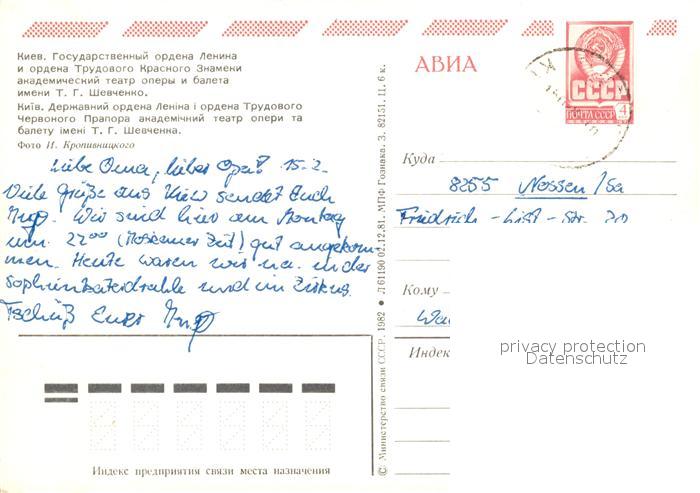 Киев. Государственный ордена Ленина
и ордена Трудового Красного Знамени
академический театр оперы и балета
имени Т. Г. Шевченко.
Київ. Державний ордена Леніна і ордена Трудового
Червоного Прапора академічний театр опери та
балету імені Т. Г. Шевченка.
Фото И. Кропивницкого
Liebe Oma, lieber Opa! 15.2.
Viele Grüße aus Kiew sendet Euch
Wir sind hier am Montag
um 22⁰⁰ (Moskauer Zeit) gut angekom-
men. Heute waren wir u.a. in der
Sophienkatedrahle und im Zirkus.
Tschüß Euer
Индекс предприятия связи места назначения
© Министерство связи СССР. 1982 ● Л 61190 02.12.81. МПФ Гознака. З. 82151. Ц. 6 к.
АВИА
СССР
ПОЧТА СССР 4
Куда
8255 Nossen/Sa
Friedrich-List-Str. 20
Кому
Индек
privacy protection
Datenschutz